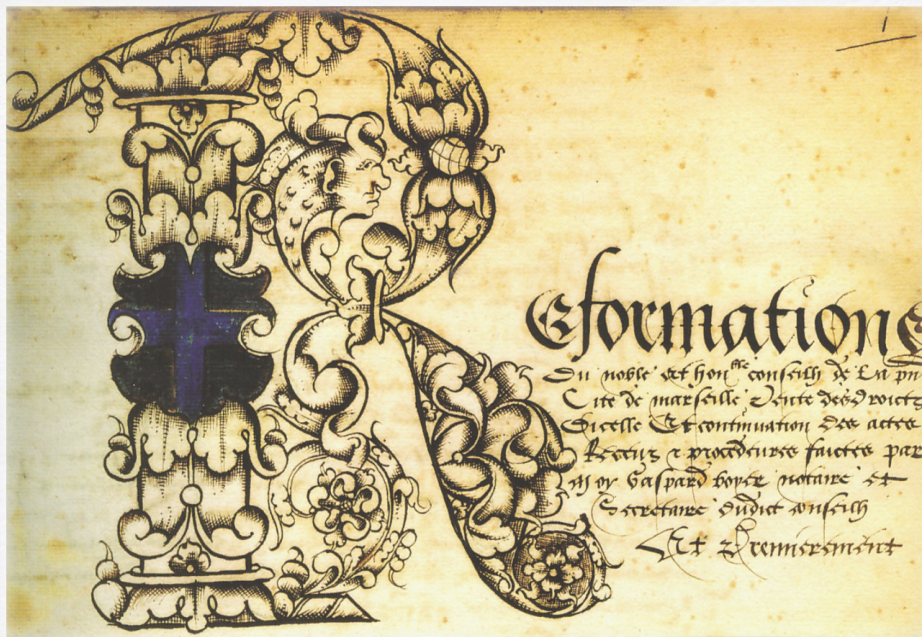 1
Reformations
Du noble et hon.ble conseilh de la pnt
Cite de marseille Vente des droictz
Dicelle Et continuation des actes
Receuz & procedeures faictes par
Moy Gaspard boyer notaire et
Secretaire dudict conseilh
Et Premierement